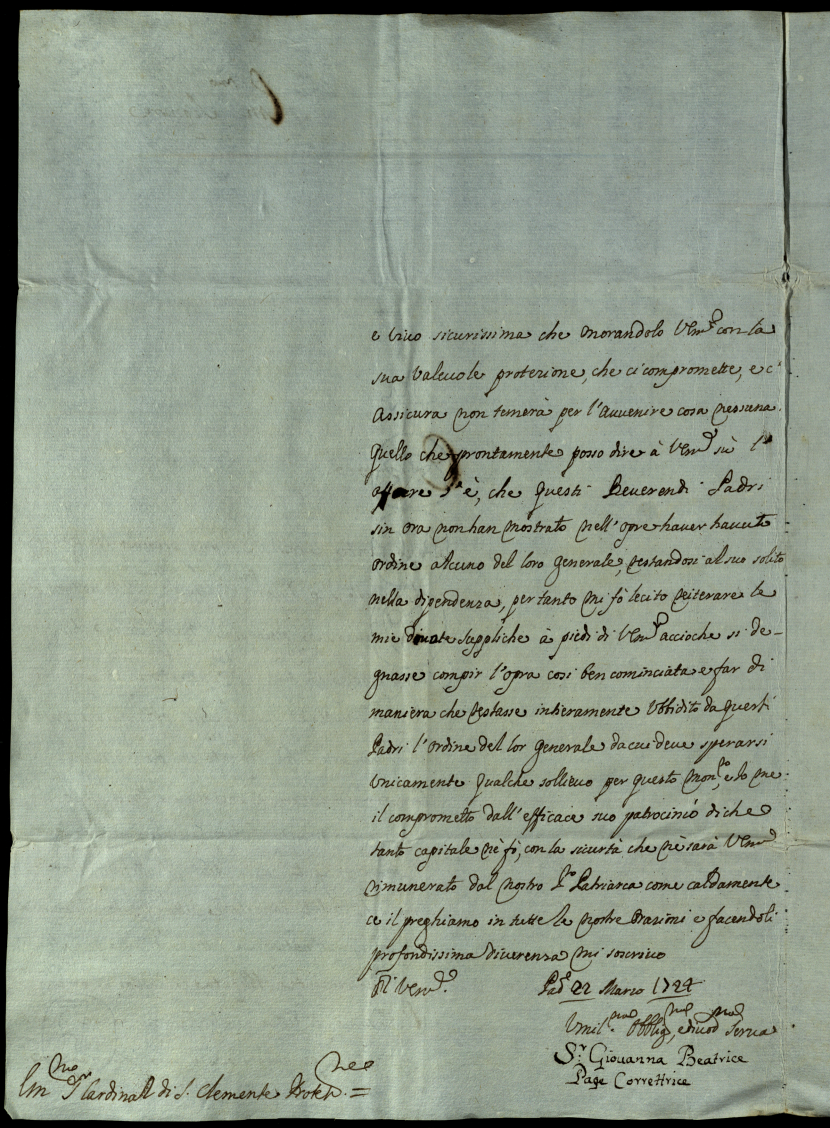 e vivo sicurissima che onorandolo V Em.ᵃ con la
sua valevole protezione, che ci compromette, e c'
Assicura non temerà per l'avvenire cosa nessuna.
Quello che prontamente posso dire à V Em.ᵃ sù l'
affare è, che questi Reverendi Padri
sin ora non han mostrato nell'opre haver havuto
ordine alcuno del loro generale, restandosi al suo solito
nella dipendenza, per tanto mi fò lecito reiterare le
mie suppliche à piedi di V Em.ᵃ accioche si de-
gnasse compir l'opra così ben cominciata e far di
maniera che restasse intieramente ubbidito da questi
Padri l'ordine del lor generale da cui deve sperarsi
unicamente qualche sollievo per questo mon.ʳᵒ, e Io me
il comprometto dall'efficace suo patrocinio di che
tanto capitale nè fò, con la sicurtà che nè sarà V Em.ᵃ
rimunerato dal nostro Pᵒ Patriarca come caldamente
ce il preghiamo in tutte le nostre Orazioni e facendoli
profondissima riverenza mi soscrivo
Di V Em.ᵃ
22 Marzo 1724
Umil.ᵐᵃ Obblig.ᵐᵃ, e divod.ᵐᵃ Serva
S.ʳ Giovanna Beatrice
Page Correttrice
Em.ᵐᵒ S.ʳ Cardinal di S. Clemente =